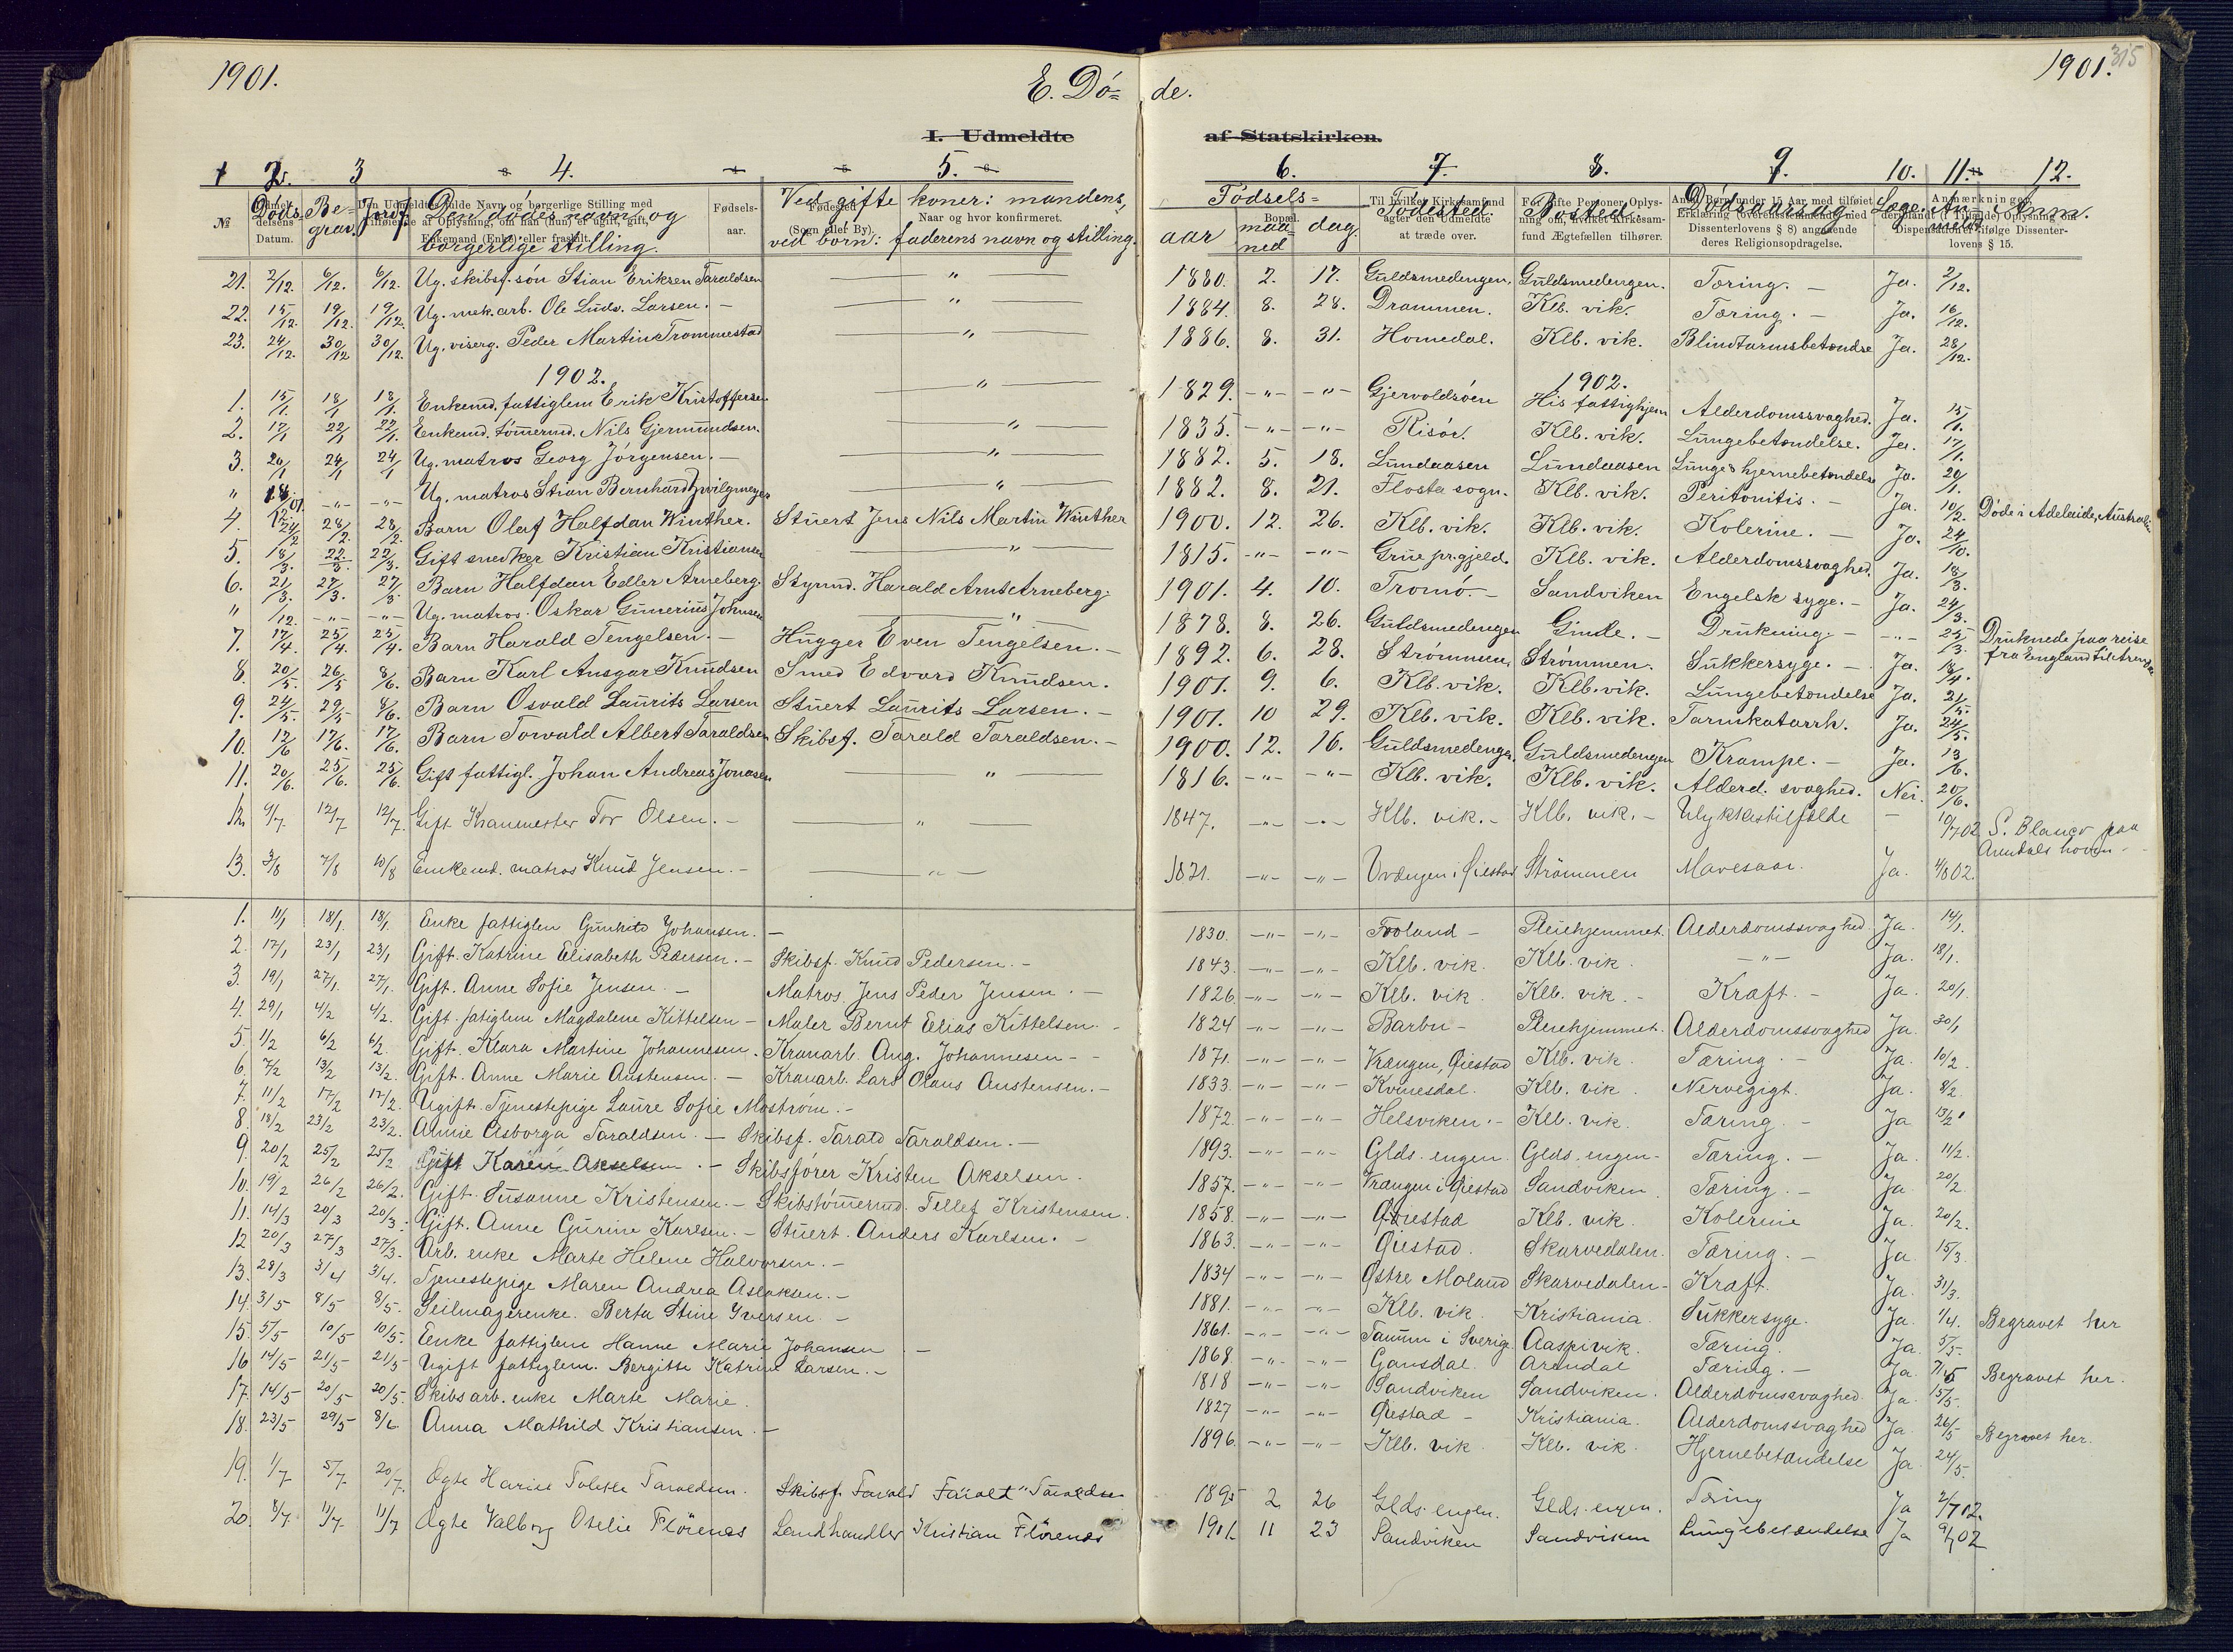 1901.
E. Dö= de.
1901. 315
I. Udmeldte af Statskirken.
1 2. 3 4. 5. 6. 7. 8. 9. 10. 11. 12.
№ Döds Be-grav. Jordf. Den dödes navn og borgerlige stilling. Ved gifte koner: mandens, ved börn: faderens navn og stilling. Födsels= aar maaned dag. Födested. Bosted. Dödsaarsag Læge. Anmeldt Anm.
21. 2/12. 6/12. 6/12. Ug. skibsf. sön Stian Eriksen Taraldsen — " — 1880. 2. 17. Guldsmedengen. Guldsmedengen. Tæring. — Ja. 2/12.
22. 15/12. 19/12. 19/12. Ug. mek. arb. Ole Ludv. Larsen. — — " — 1884. 8. 28. Drammen. Klb. vik. Tæring. — Ja. 16/12.
23. 24/12. 30/12 30/12. Ug. viserg. Peder Martin Trommestad — " — 1886. 8. 31. Homedal. Klb. vik. Blindtarmsbetændse Ja. 28/12.
1902. 1902.
1. 15/1. 18/1 18/1. Enkemd. fattiglem Erik Kristoffersen — " — 1829. -"- -"- Gjervoldsöen His fattighjem Alderdomssvaghed. Ja. 15/1.
2. 17/1 22/1 22/1. Enkemd. tömermd. Nils Gjermundsen. — " — 1835. -"- -"- Risör. Klb. vik. Lungebetændelse. Ja. 17/1.
3. 20/1 24/1 24/1 Ug. matros Georg Jörgensen. — — " — 1882. 5. 18. Lundaasen Lundaasen Lunge o hjernebetændelse Ja. 20/1.
" -"- -"- Ug. matros Stian Bernhard Zwilgmeyer — " — 1882. 8. 21. Flosta sogn. Klb. vik. Peritonitis. — Ja. 10/2. Döde i Adelaide, Australien
4. 28/2. 28/2. Barn Olaf Halfdan Winther. Stuert Jens Nils Martin Winther 1900. 12. 26. Klb. vik. Klb. vik. Kolerine. — Ja. 24/10.
5. 18/3. 22/3 22/3. Gift snedker Kristian Kristiansen — " — 1815. -"- -"- Grue pr.gjeld. Klb. vik. Alderdomssvaghed. Ja. 18/3.
6. 21/3. 27/3. 27/3 Barn Halfdan Edler Arneberg. Styrmd. Harald Arnt Arneberg. 1901. 4. 10. Tromö. — Sandviken Engelsk syge. — Ja. 24/3.
" /12. -"- -"- Ug. matros. Oskar Gunerius Johnsen " 1878. 8. 26. Guldsmedengen Ginde. — Drukning. — -"- 25/3 Druknede paa reise fra England til Arendal
7. 17/4. 25/4. 25/4. Barn Harald Tengelsen. — Hugger Even Tengelsen. — 1892. 6. 28. Strömmen, Strömmen. Sukkersyge. — Ja. 18/4.
8. 20/5. 26/5 8/6. Barn Karl Ansgar Knudsen Smed Edvard Knudsen. 1901. 9. 6. Klb. vik. Klb. vik. Lungebetændelse Ja. 21/5.
9. 24/5. 29/5 8/6. Barn Osvald Laurits Larsen Stuert Laurits Larsen. — 1901. 10 29. Klb. vik. Klb. vik. Tarmkatarrh. Ja. 24/5.
10. 12/6 17/6. 17/6. Barn Torvald Albert Taraldsen Skibsf. Tarald Taraldsen. — 1900. 12. 16. Guldsmedengen. Guldsmedengen Krampe. — Ja. 13/6.
11. 20/6. 25/6. 25/6. Gift fattigl. Johan Andreas Jonasen — " — 1816. -"- -"- Klb. vik. Klb. vik. Alderd. svaghed. Nei. 20/6.
12. 9/7 12/7 12/7. Gift Kranmester Tor Olsen. — — " — 1847. -"- -"- Klb. vik. — Klb. vik. — Ulykkestilfælde — 10/702 S. Blanco paa Arendals havn —
13. 3/8 7/8 10/8 Enkemd. matros Knud Jensen. — — " — 1821. -"- -"- Vrængen i Øiestad Strömmen Mavesaar. Ja. 4/802.
1. 11/1 18/1. 18/1. Enke fattiglem Gunhild Johansen. — 1830. -"- -"- Froland — Pleiehjemmet. Alderdomssvaghed Ja. 14/1.
2. 17/1 23/1 23/1 Gift. Katrine Elisabeth Pedersen. — Skibsf. Knud Pedersen. — 1843. -"- -"- Klb. vik. Klb. vik. -"- Ja. 18/1.
3. 19/1 27/1. 27/1. Gift. Anne Sofie Jensen. — Matros Jens Peder Jensen. — 1826. -"- -"- Klb. vik Klb. vik. — Kræft. — Ja. 20/1
4. 29/1 4/2 4/2. Gift. fatiglem Magdalene Kittelsen — Maler Bernt Elias Kittelsen. — 1824 -"- -"- Barbu — Pleiehjemmet. Alderdomssvaghed Ja. 30/1
5. 1/2 6/2 6/2. Gift. Klara Martine Johannesen. Kranarb. Aug. Johannesen — 1871. -"- -"- Vrængen, Øiestad Klb. vik. Tæring. — Ja. 10/2.
6. 7/2 13/2 13/2. Gift. Anne Marie Austensen. — Kranarb. Lars Olaus Austensen. — 1833. -"- -"- Kvinesdal. Klb. vik Nervegigt. Ja. 8/2.
7. 11/2 17/2 17/2. Ugift. Tjenestepige Laure Sofie Moström. — 1872. -"- -"- Helsviken. — Klb. vik. Tæring. — Ja 13/2
8. 18/2 23/2 23/2. Annie Asborga Taraldsen. — Skibsf. Tarald Taraldsen. — 1893. -"- -"- Glds. engen. Glds. engen. Tæring. — Ja. 11/2.
9. 20/2 25/2 25/2 Gift Karen Akselsen. — Skibsfører Kristen Akselsen. 1857. -"- -"- Vrængen i Øiestad Sandviken Tæring. — Ja. 20/2
10. 19/2 26/2 26/2. Gift. Susanne Kristensen. — Skibstömermd. Tellef Kristensen. 1858. -"- -"- Øiestad Klb. vik. Kolerine Ja. 20/2.
11. 14/3 20/3 20/3. Gift. Anne Gurine Karlsen. — Stuert. Anders Karlsen. — 1863. -"- -"- Øiestad. Skarvedalen. Tæring. — Ja. 15/3
12 20/3 27/3 27/3. Arb. enke Marte Helene Halvorsen. — 1834 -"- -"- Østre Moland Skarvedalen — Kræft. Ja. 31/3.
13. 28/3 3/4 3/4. Tjenestepige Maren Andrea Aslaksen. — 1881. -"- -"- Klb. vik Kristiania. Sukkersyge. Ja. 1/4. Begravet her
14. 3/5 8/5 8/5. Seilmagerenke. Berta Stine Iversen. — 1861. -"- -"- Tanum i Sverige Aaspivik. Tæring. Ja. 5/5.
15. 5/5 10/5 10/5. Enke fattiglem Hanne Marie Johansen. — 1868. -"- -"- Gansdal. Arendal Tæring. — Ja. 7/5 Begravet her.
16 14/5 21/5 21/5 Ugift fattiglem. Bergitte Katrine Larsen. — 1818 -"- -"- Sandviken Sandviken. Alderdomssvaghed. Ja. 15/5.
17. 14/5 20/5 20/5. Skibsarb. enke Marte Marie. 1827 -"- -"- Øiestad — Kristiania. Alderdomssvaghed Ja. 26/5 Begravet her.
18. 23/5 29/5 8/6. Anna Mathild Kristiansen. — 1896. -"- -"- Klb. vik Klb. vik. Hjernebetændelse Ja 24/5.
19. 1/7 5/7. 20/7. Ægte Taraldsen. Skibsf. Tarald Tarald " Taraldsen 1895 2 26 Glds. engen. Glds. engen. Tæring Ja 2/702.
20. 8/7 11/7. 11/7 Ægte Valborg Otelie Flörenæs Landhandler Kristian Flörenæs 1901. 11 23 Sandviken Sandviken Lungebetændelse Ja 9/702